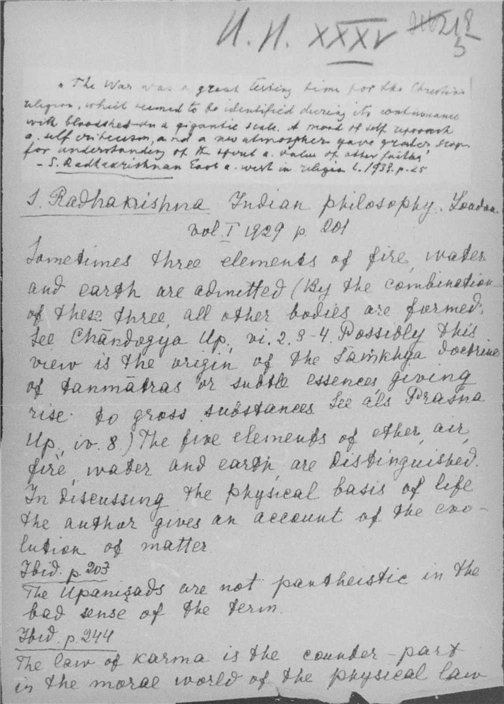 И. И. XXXV 218
5
"The War was a great testing time for the Christian
religion, which seemed to be identified during its continuance
with bloodshed on a gigantic scale. A mood of self reproach
a. self criticism, and a new atmosphere gave greater scope
for understanding of the spirit a. value of other faiths"
- S. Radhakrishnan East a. West in religion L. 1933. p. 25
S. Radhakrishna Indian philosophy. London
vol I 1929 p 201
Sometimes three elements of fire, water
and earth are admitted (By the combination
of these three, all other bodies are formed.
See Chāndogya Up, vi. 2. 3-4. Possibly this
view is the origin of the Sāmkhya doctrine
of tanmātras or subtle essences, giving
rise to gross substances See als Prasna
Up, iv. 8) The five elements of ether, air,
fire, water and earth, are distinguished.
In discussing the physical basis of life
the author gives an account of the evo-
lution of matter
Ibid. p 203
The Upanişads are not pantheistic in the
bad sense of the term.
Ibid. p. 244
The law of karma is the counter-part
in the moral world of the physical law